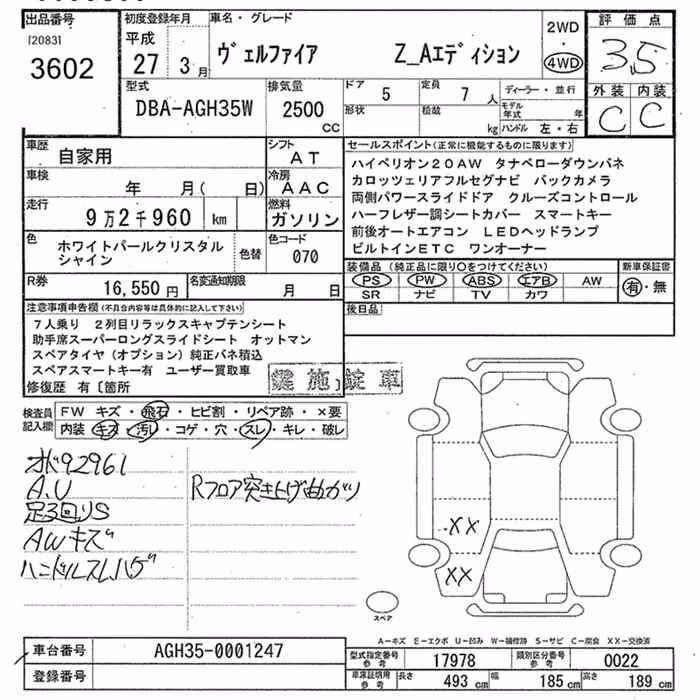 出品番号
[2083]
3602
初度登録年月
平成
27 3月
車名・グレード
ヴェルファイア Z_Aエディション
2WD
・
4WD
評価点
3.5
外装 内装
C C
型式
DBA-AGH35W
排気量
2500
cc
ドア 5
定員 7人
形状
積載 kg
ディーラー・並行
モデル年式 年
ハンドル 左・右
車歴
自家用
シフト
AT
車検
年 月( 日)
冷房
AAC
走行
9万2千960 km
燃料
ガソリン
色
ホワイトパールクリスタル
シャイン
色替
色コード
070
R券
16,550円
名変通知期限
月 日
セールスポイント(正常に機能するものに限ります)
ハイペリオン20AW タナベローダウンバネ
カロッツェリアフルセグナビ バックカメラ
両側パワースライドドア クルーズコントロール
ハーフレザー調シートカバー スマートキー
前後オートエアコン LEDヘッドランプ
ビルトインETC ワンオーナー
装備品(純正品に限り○をつけてください)
PS PW ABS エアB AW
SR ナビ TV カワ
新車保証書
有・無
後日品
注意事項申告欄(不具合内容等は具体的に記入して下さい)
7人乗り 2列目リラックスキャプテンシート
助手席スーパーロングスライドシート オットマン
スペアタイヤ(オプション)純正バネ積込
スペアスマートキー有 ユーザー買取車
修復歴 有〔箇所
施錠車
検査員
記入欄
FW キズ・飛石・ヒビ割・リペア跡・×要
内装 キズ・汚レ・コゲ・穴・スレ・キレ・破レ
オド92961
A.U
足3回リS
AWキズ
ハンドルスレ,ハゲ
Rフロア突き上げ曲がり
XX
XX
スペア
A−キズ E−エクボ U−凹み W−補修跡 S−サビ C−腐食 XX−交換済
車台番号
AGH35-0001247
登録番号
型式指定番号
参考
17978
類別区分番号
参考
0022
車庫証明用
参考
長さ 493cm
幅 185cm
高さ 189cm